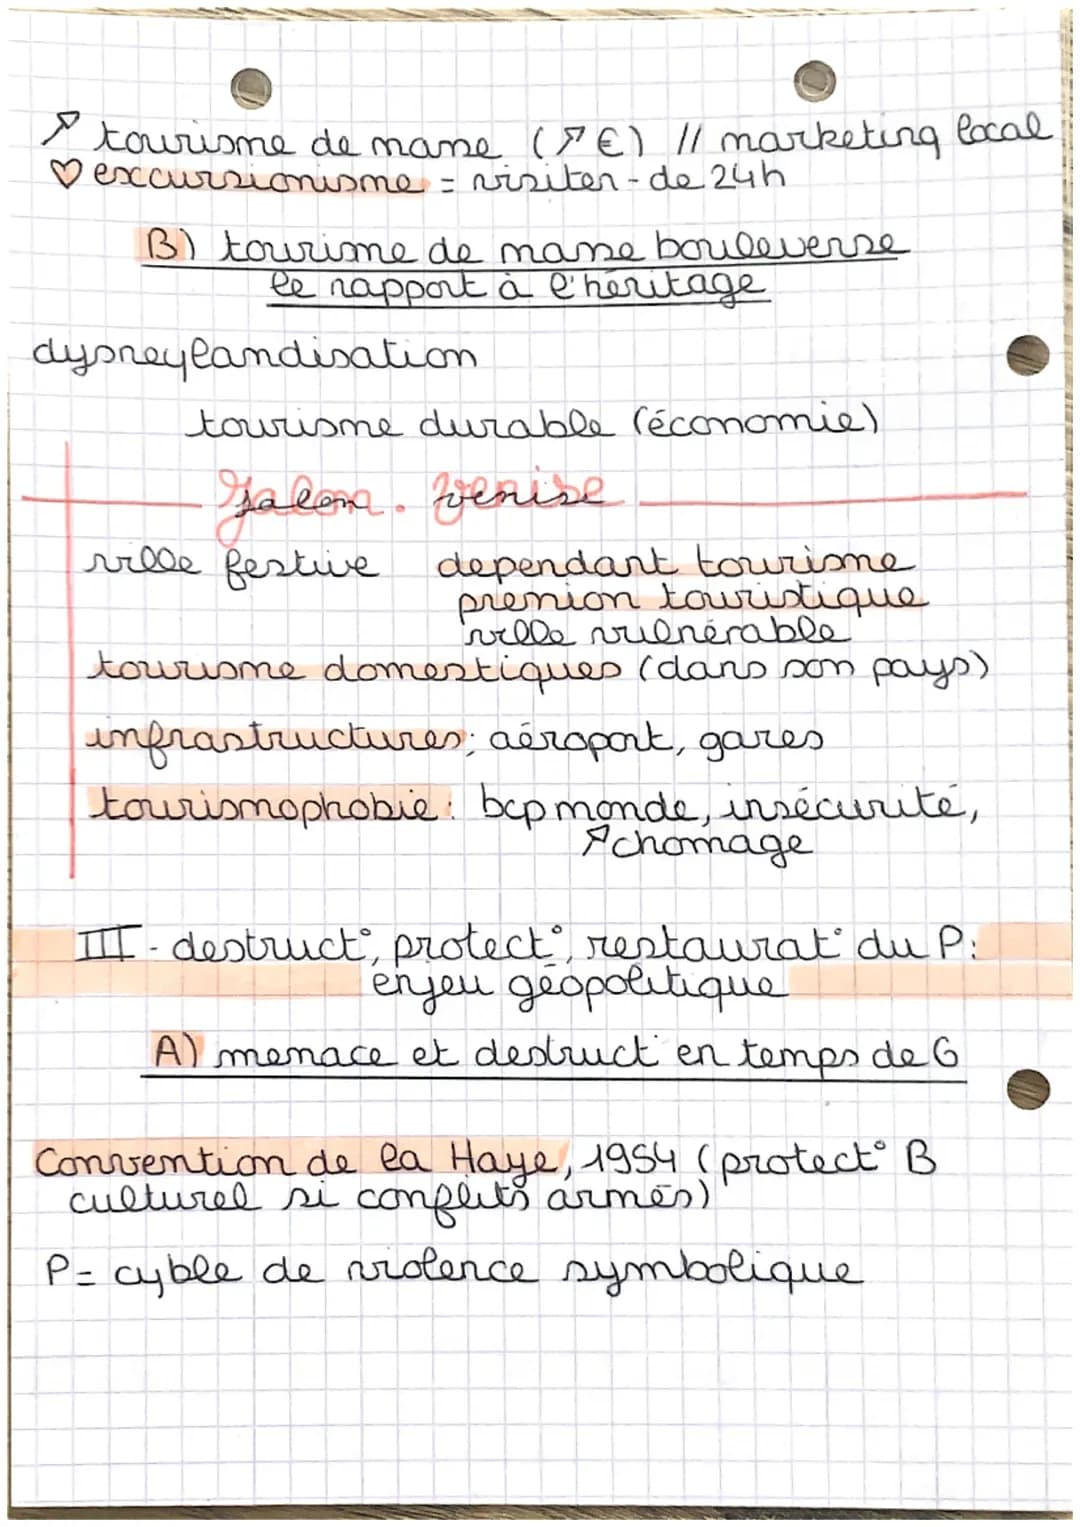 ↗ tourisme de masse (↗€) // marketing local
♡ excursionisme = visiter - de 24h
B) tourime de masse bouleverse
le rapport à l'héritage
dysneylandisation
tourisme durable (économie)
Jalon. Venise
ville festive dependant tourisme
pression touristique
ville vulnérable
tourisme domestiques (dans son pays)
infrastructures; aéroport, gares
tourismophobie: bcp monde, insécurité,
↗chomage
III - destruct°, protect°, restaurat° du P:
enjeu géopolitique
A) menace et destruct° en temps de G
Convention de la Haye, 1954 (protect° B
culturel si conflits armés)
P= cyble de violence symbolique